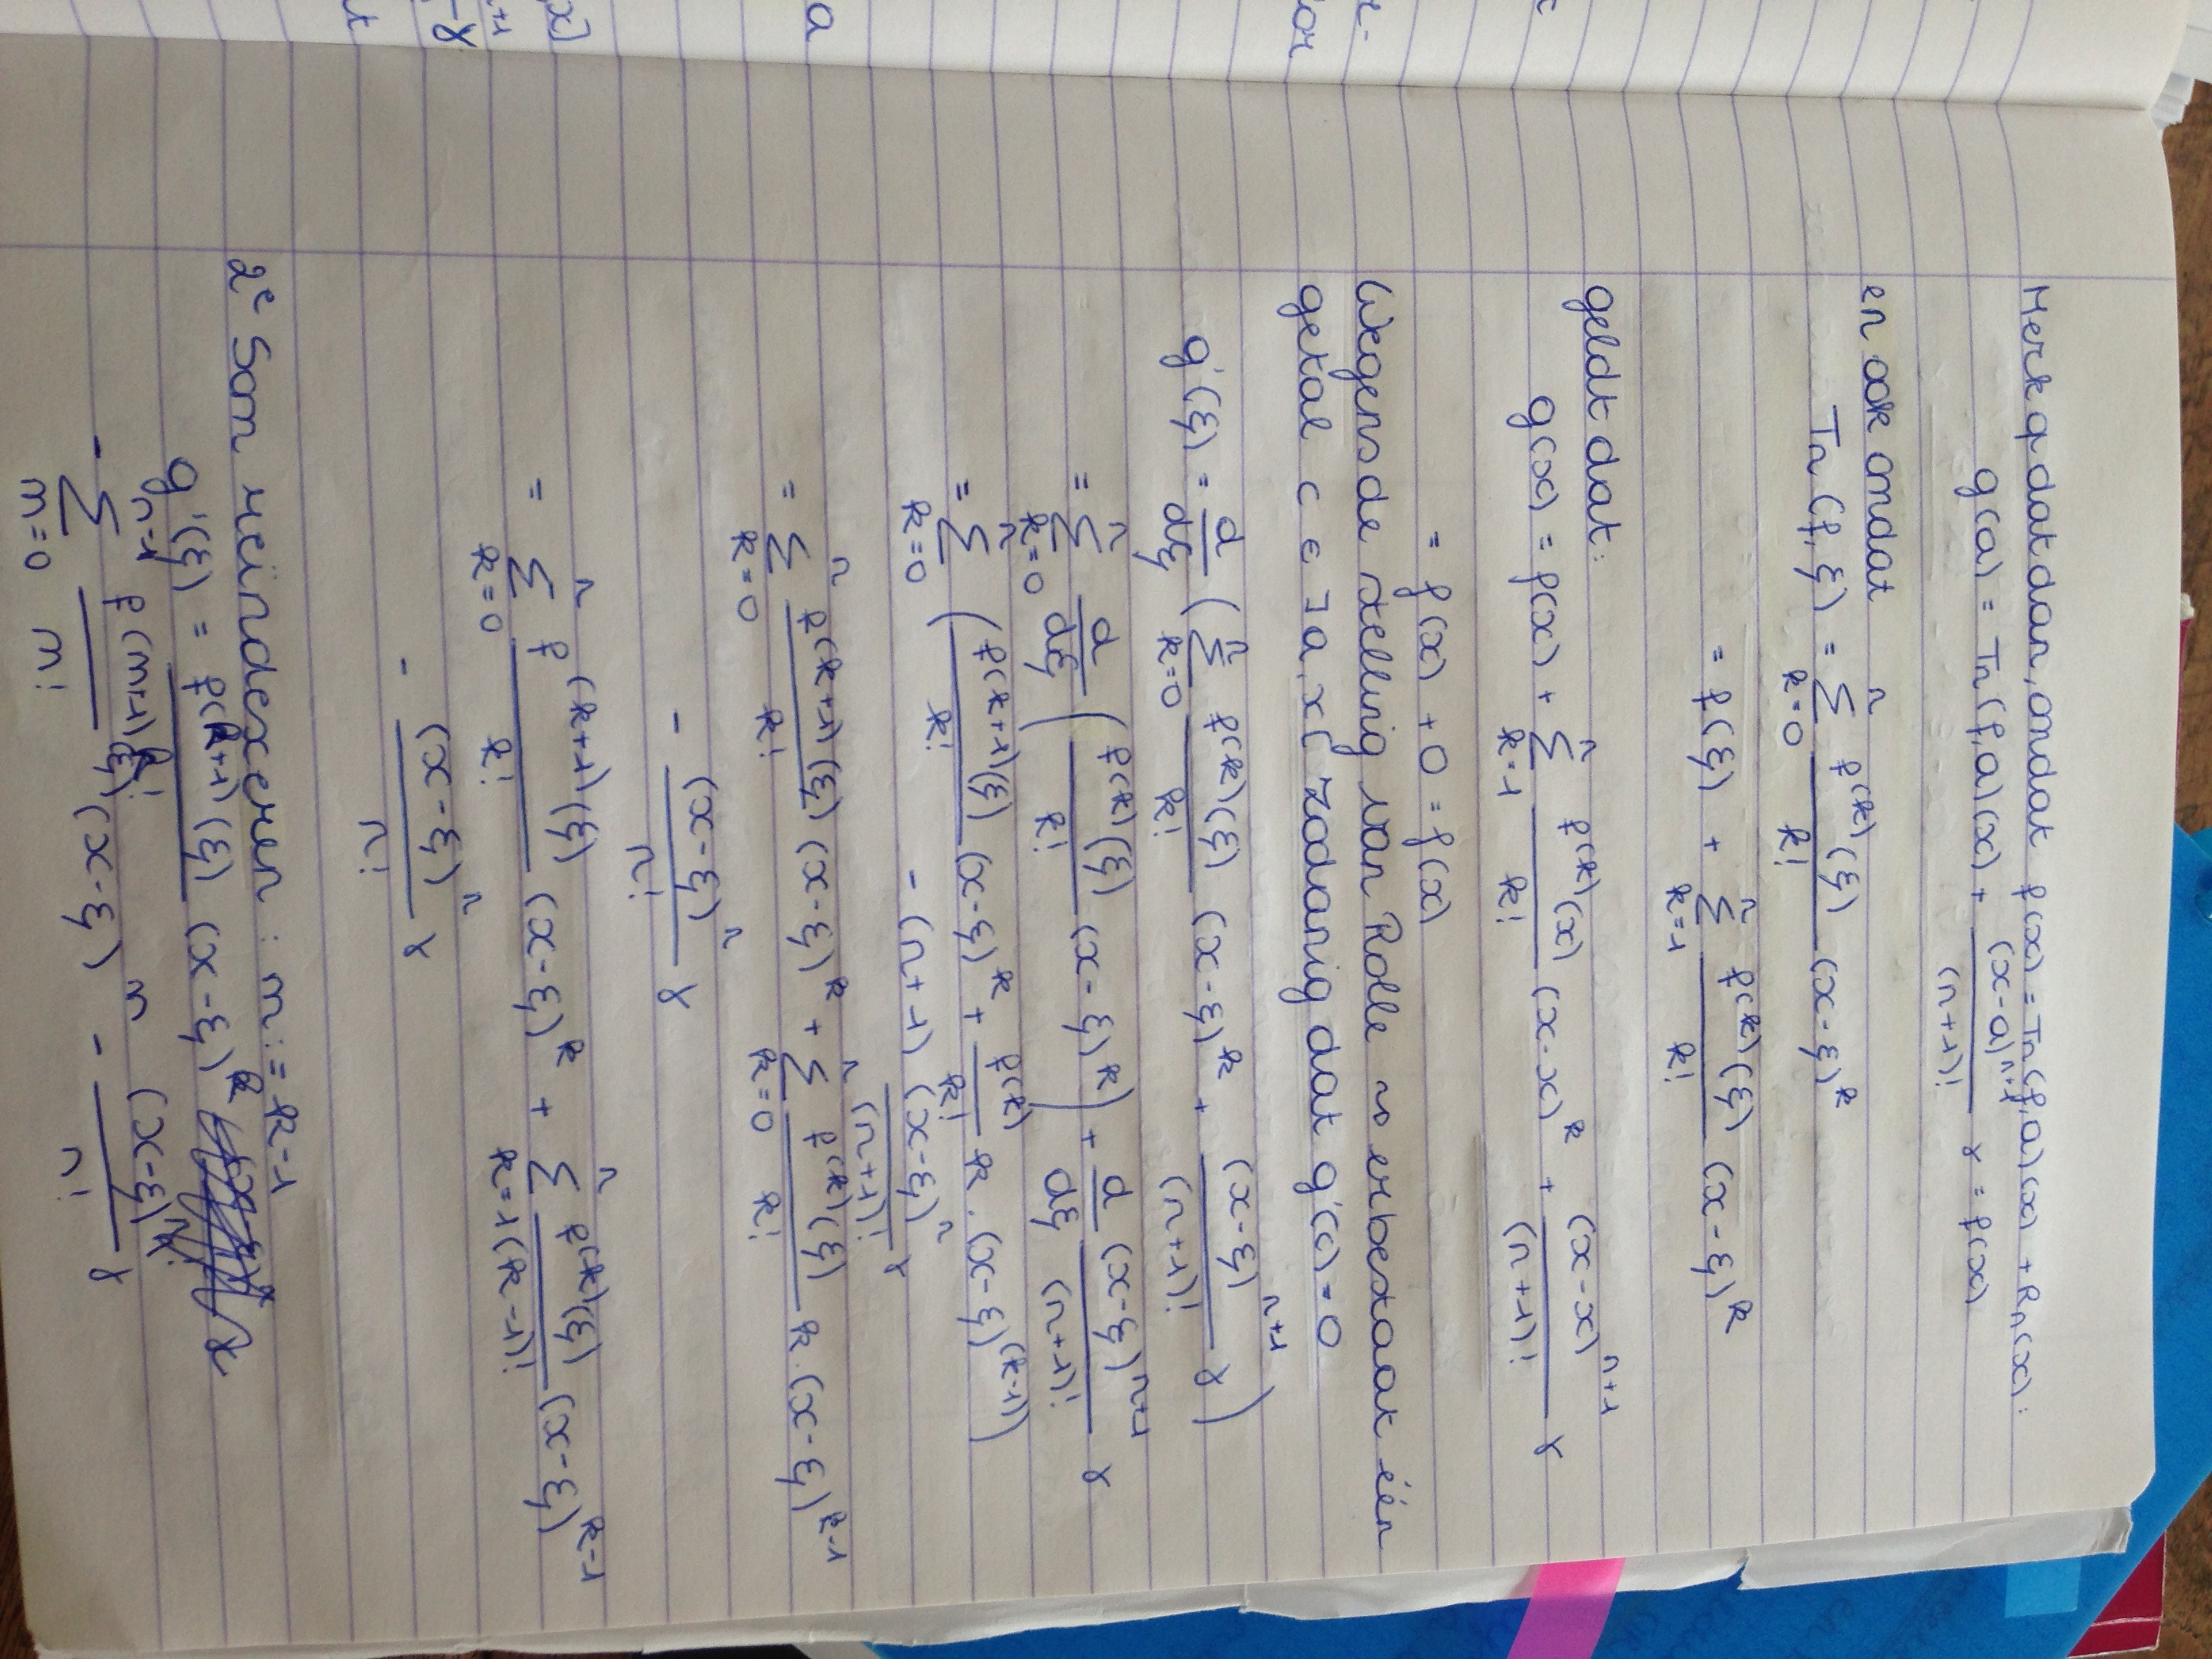 Merk op dat dan, omdat f(x) = Tn(f,a)(x) + Rn(x):
g(a) = Tn(f,a)(x) + (x-a)^{n+1}/(n+1)! γ = f(x)
en ook omdat
Tn(f,ξ) = Σ_{k=0}^{n} f^{(k)}(ξ)/k! (x-ξ)^k
= f(ξ) + Σ_{k=1}^{n} f^{(k)}(ξ)/k! (x-ξ)^k
geldt dat:
g(x) = f(x) + Σ_{k=1}^{n} f^{(k)}(x)/k! (x-x)^k + (x-x)^{n+1}/(n+1)! γ
= f(x) + 0 = f(x)
Wegens de stelling van Rolle ⇝ er bestaat één
getal c ∈ ]a,x[ zodanig dat g'(c) = 0
g'(ξ) = d/dξ (Σ_{k=0}^{n} f^{(k)}(ξ)/k! (x-ξ)^k + (x-ξ)^{n+1}/(n+1)! γ)
= Σ_{k=0}^{n} d/dξ (f^{(k)}(ξ)/k! (x-ξ)^k) + d/dξ (x-ξ)^{n+1}/(n+1)! γ
= Σ_{k=0}^{n} (f^{(k+1)}(ξ)/k! (x-ξ)^k + f^{(k)}/k! k . (x-ξ)^{(k-1)})
- (n+1) (x-ξ)^n/(n+1)! γ
= Σ_{k=0}^{n} f^{(k+1)}(ξ)/k! (x-ξ)^k + Σ_{k=0}^{n} f^{(k)}(ξ)/k! k . (x-ξ)^{k-1}
- (x-ξ)^n/n! γ
= Σ_{k=0}^{n} f^{(k+1)}(ξ)/k! (x-ξ)^k + Σ_{k=1}^{n} f^{(k)}(ξ)/(k-1)! (x-ξ)^{k-1}
- (x-ξ)^n/n! γ
2e Som reïndexeren : m := k-1
g'(ξ) = f^{(k+1)}(ξ)/k! (x-ξ)^k
- Σ_{m=0}^{n-1} f^{(m+1)}(ξ)/m! (x-ξ)^m - (x-ξ)^n/n! γ
or
a
x]
n+1
γ
t